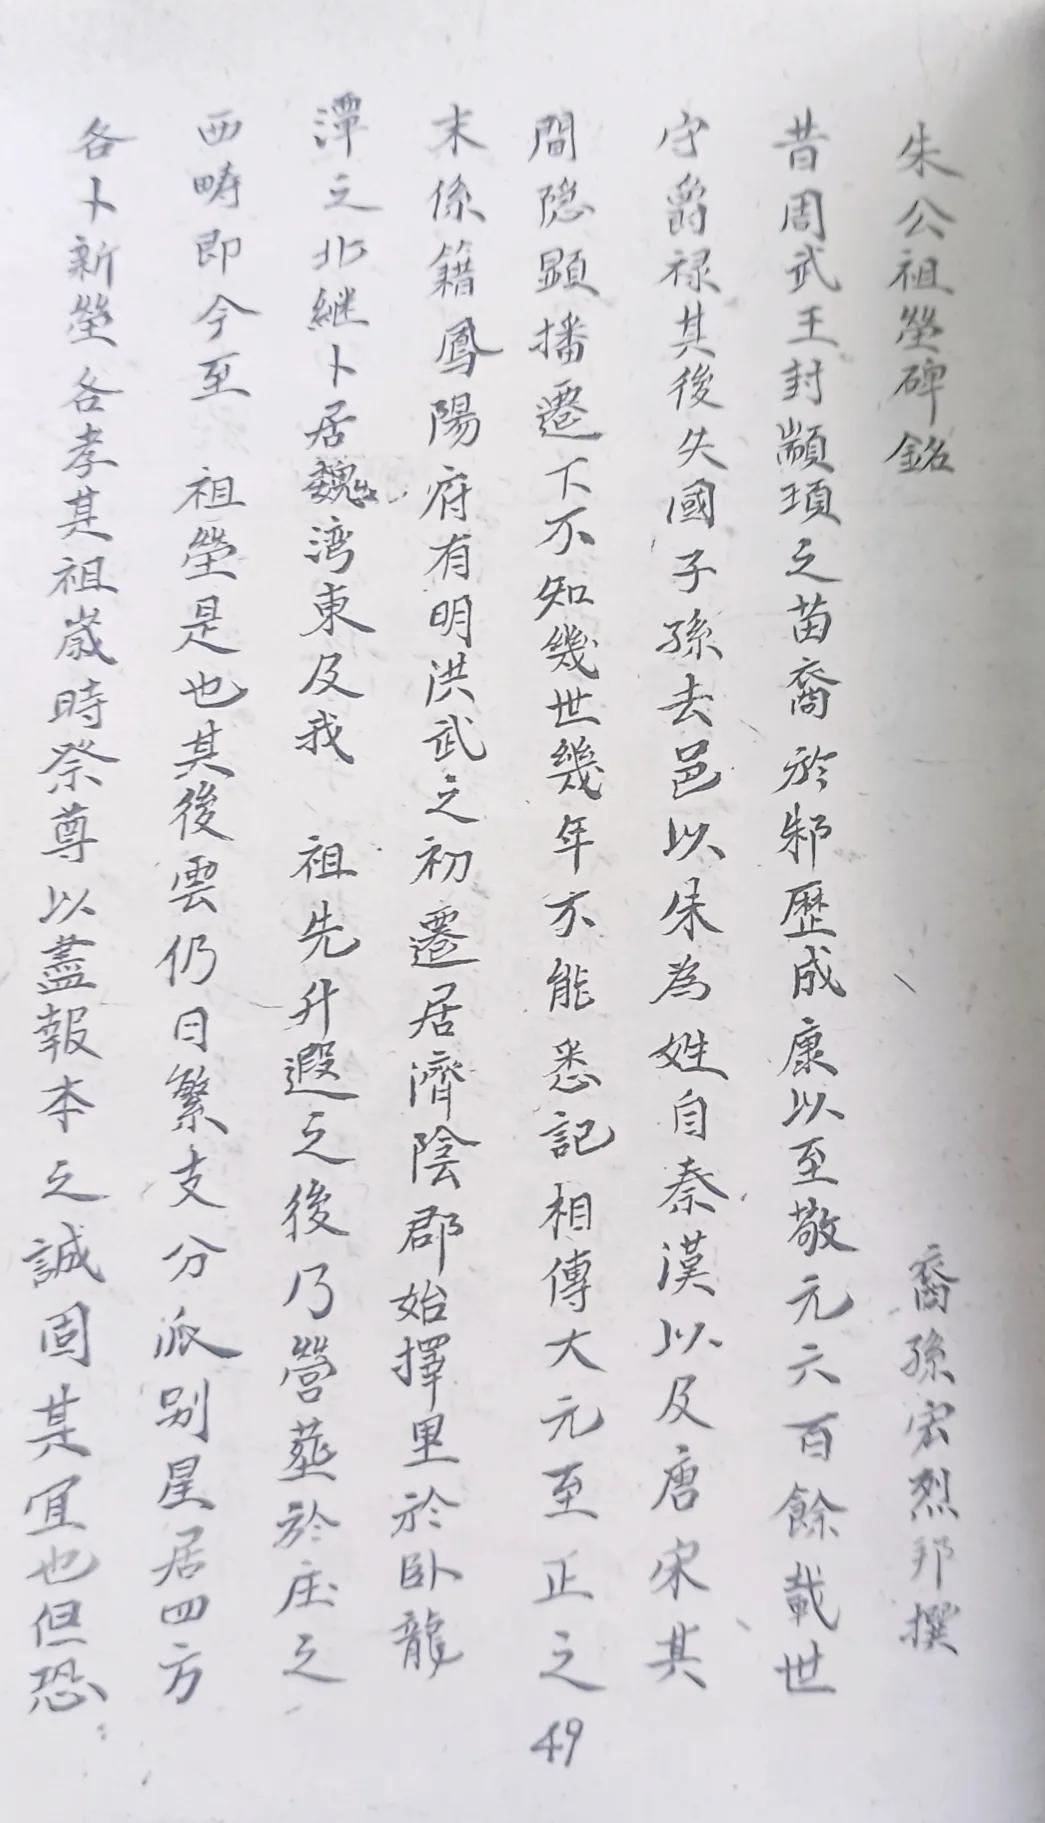 朱公祖塋碑銘 裔孫宏烈邦撰
昔周武王封顓頊之苗裔於邾歷成康以至敬元六百餘載世
守爵禄其後失國子孫去邑以朱為姓自秦漢以及唐宋其
間隐顕播遷下不知幾世幾年不能悉記相傳大元至正之
末係籍鳳陽府有明洪武之初遷居濟陰郡始擇里於卧龍
潭之北継卜居魏湾東及我 祖先升遐之後乃營塟於庄之
西畴即今至 祖塋是也其後雲仍日繁支分派别星居四方
各卜新塋各孝其祖歲時祭尊以盡報本之誠固其宜也但恐
49